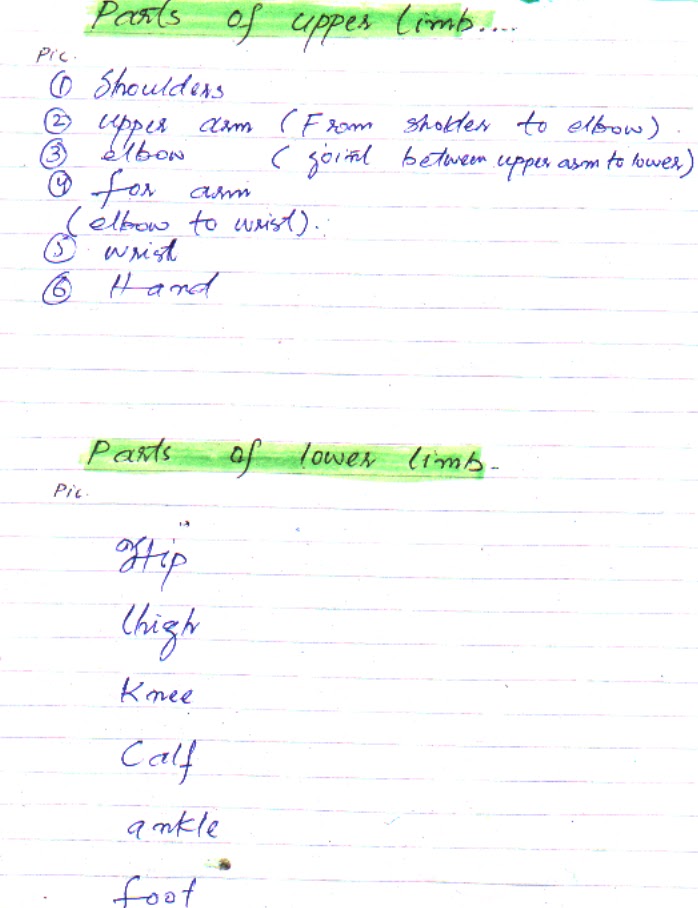 Parts of upper limb....
Pic.
① Shoulders
② upper arm (From sholder to elbow).
③ elbow (joint between upper arm to lower)
④ for arm
(elbow to wrist).
⑤ wrist
⑥ Hand
Parts of lower limb.
Pic.
Hip
thigh
Knee
Calf
ankle
foot